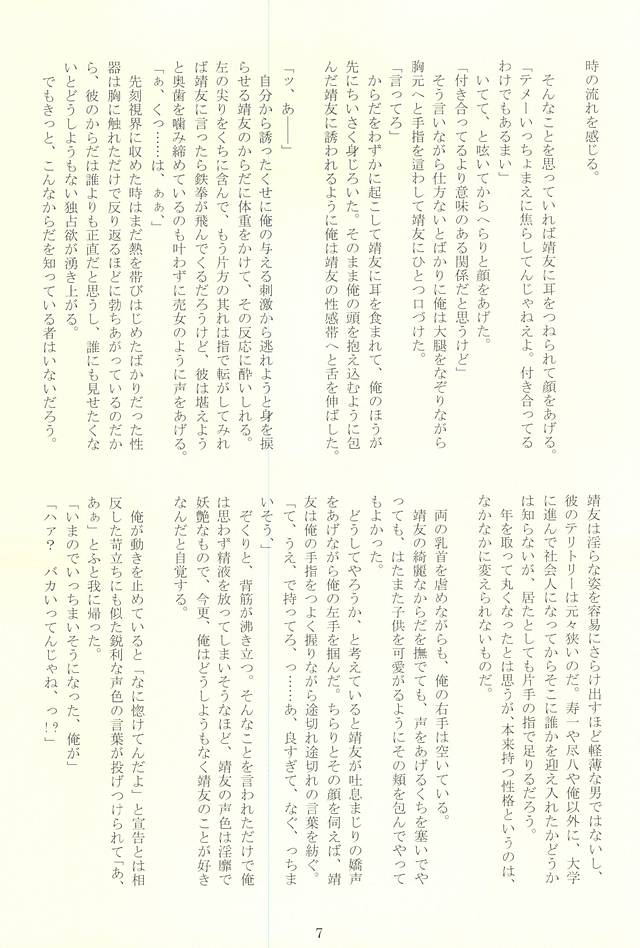 時の流れを感じる。
　そんなことを思っていれば靖友に耳をつねられて顔をあげる。
「テメーいっちょまえに焦らしてんじゃねえよ。付き合ってる
わけでもあるまい」
　いてて、と呟いてからへらりと顔をあげた。
「付き合ってるより意味のある関係だと思うけど」
　そう言いながら仕方ないとばかりに俺は大腿をなぞりながら
胸元へと手指を這わして靖友にひとつ口づけた。
「言ってろ」
　からだをわずかに起こして靖友に耳を食まれて、俺のほうが
先にちいさく身じろいた。そのまま俺の頭を抱え込むように包
んだ靖友に誘われるように俺は靖友の性感帯へと舌を伸ばした。
「ッ、あ――」
　自分から誘ったくせに俺の与える刺激から逃れようと身を捩
らせる靖友のからだに体重をかけて、その反応に酔いしれる。
左の尖りをくちに含んで、もう片方の其れは指で転がしてみれ
ば靖友に言ったら鉄拳が飛んでくるだろうけど、彼は堪えよう
と奥歯を噛み締めているのも叶わずに売女のように声をあげる。
「ぁ、くっ……は、ぁぁ、」
　先刻視界に収めた時はまだ熱を帯びはじめたばかりだった性
器は胸に触れただけで反り返るほどに勃ちあがっているのだか
ら、彼のからだは誰よりも正直だと思うし、誰にも見せたくな
いとどうしようもない独占欲が湧き上がる。
　でもきっと、こんなからだを知っている者はいないだろう。
靖友は淫らな姿を容易にさらけ出すほど軽薄な男ではないし、
彼のテリトリーは元々狭いのだ。寿一や尽八や俺以外に、大学
に進んで社会人になってからそこに誰かを迎え入れたかどうか
は知らないが、居たとしても片手の指で足りるだろう。
　年を取って丸くなったとは思うが、本来持つ性格というのは、
なかなかに変えられないものだ。
　両の乳首を虐めながらも、俺の右手は空いている。
　靖友の綺麗なからだを撫でても、声をあげるくちを塞いでや
っても、はたまた子供を可愛がるようにその頬を包んでやって
もよかった。
　どうしてやろうか、と考えていると靖友が吐息まじりの嬌声
をあげながら俺の左手を掴んだ。ちらりとその顔を伺えば、靖
友は俺の手指をつよく握りながら途切れ途切れの言葉を紡ぐ。
「て、うえ、で持ってろ、っ……あ、良すぎて、なぐ、っちま
いそう、」
　ぞくりと、背筋が沸き立つ。そんなことを言われただけで俺
は思わず精液を放ってしまいそうなほど、靖友の声色は淫靡で
妖艶なもので、今更、俺はどうしようもなく靖友のことが好き
なんだと自覚する。
　俺が動きを止めていると「なに惚けてんだよ」と宣告とは相
反した苛立ちにも似た鋭利な声色の言葉が投げつけられて「あ、
あぁ」とふと我に帰った。
「いまのでいっちまいそうになった、俺が」
「ハァ？　バカいってんじゃね、っ!?」
7